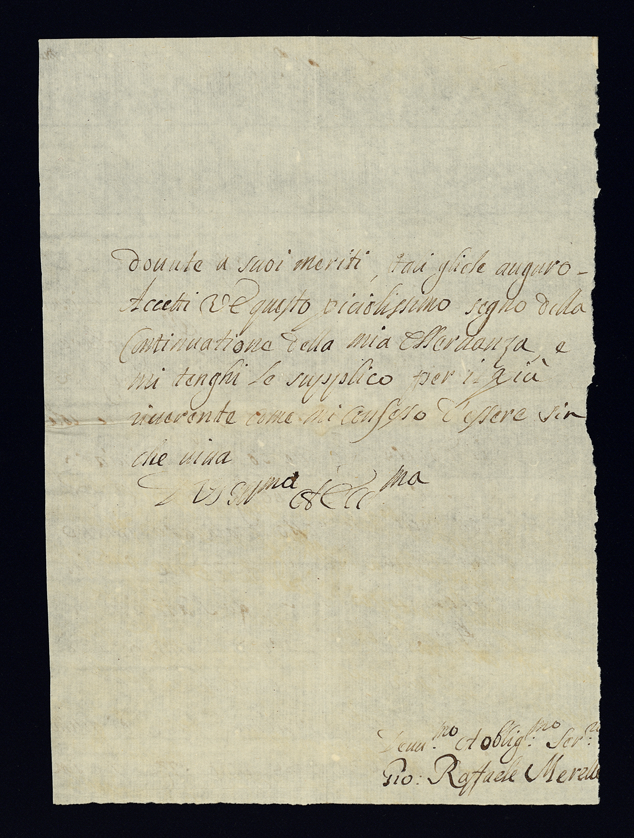 douute a suoi meriti, tali gliele auguro -
Accetti VE questo picciolissimo segno della
Continuatione della mia osseruanza, e
mi tenghi le supplico per il più
riuerente come mi confesso d'essere sin
che uiua
D VS Ill ma et Ecc ma
Deuu. mo et oblig. mo Ser. re
Gio: Raffaele Merell